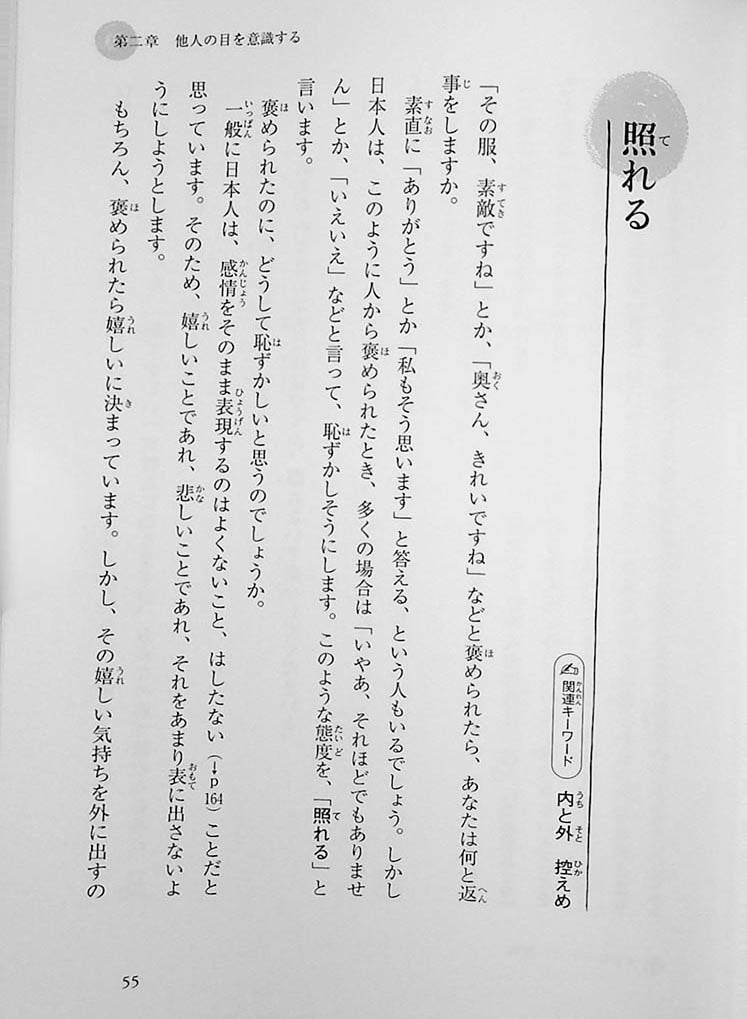 第二章　他人の目を意識する
照れる
関連キーワード　内と外　控えめ
「その服、素敵ですね」とか、「奥さん、きれいですね」などと褒められたら、あなたは何と返
事をしますか。
素直に「ありがとう」とか「私もそう思います」と答える、という人もいるでしょう。しかし
日本人は、このように人から褒められたとき、多くの場合は「いやあ、それほどでもありませ
ん」とか、「いえいえ」などと言って、恥ずかしそうにします。このような態度を、「照れる」と
言います。
褒められたのに、どうして恥ずかしいと思うのでしょうか。
一般に日本人は、感情をそのまま表現するのはよくないこと、はしたない（→p164）ことだと
思っています。そのため、嬉しいことであれ、悲しいことであれ、それをあまり表に出さないよ
うにしようとします。
もちろん、褒められたら嬉しいに決まっています。しかし、その嬉しい気持ちを外に出すの
55